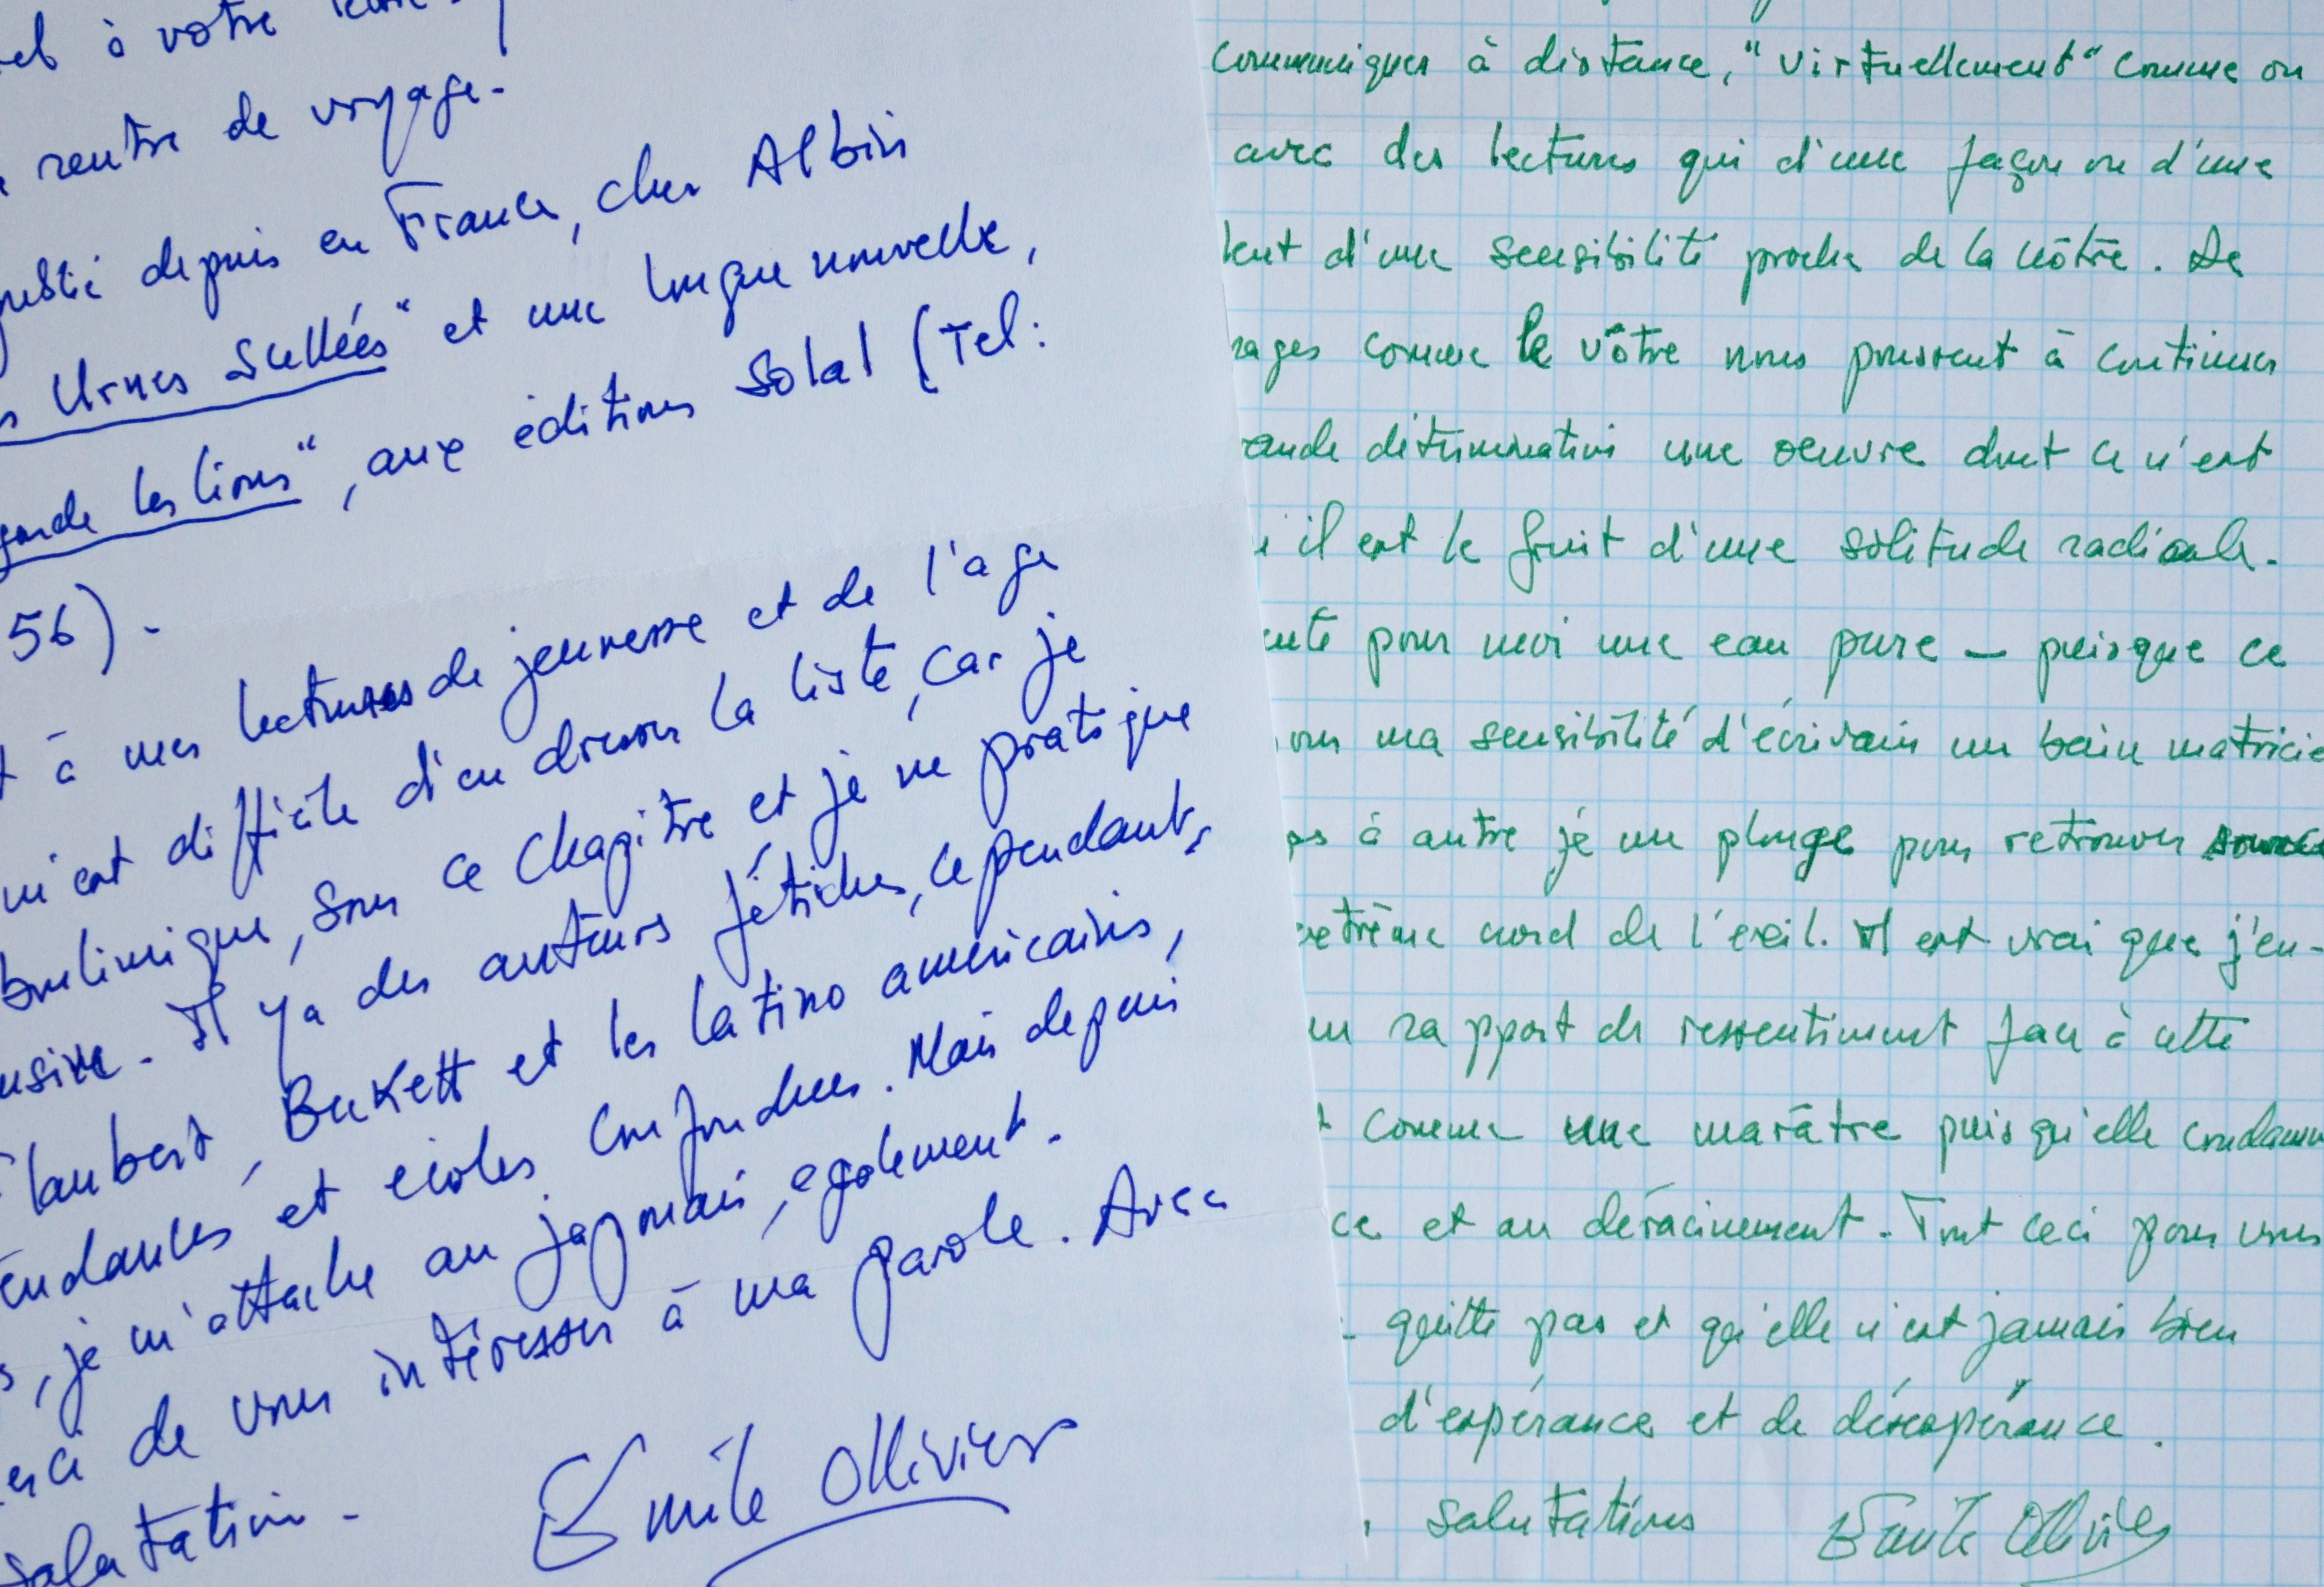 à votre
rentre de voyage.
publié depuis en France, chez Albin
Urnes Scellées" et une longue nouvelle,
garde les lions", aux éditions Solal (Tel:
56).
à mes lectures de jeunesse et de l'age
m'est difficile d'en dresser la liste, car je
boulimique, sous ce chapitre et je ne pratique
Il y a des auteurs fétiches, cependant,
Flaubert, Beckett et les latino américains,
tendances et écoles confondues. Mais depuis
, je m'attache au japonais, egalement.
merci de vous intéresser à ma parole. Avec
salutations.
Emile Ollivier
communiquer à distance, "virtuellement" comme on
avec des lecteurs qui d'une façon ou d'une
d'une sensibilité proche de la nôtre. De
comme le vôtre nous poussent à continuer
détermination une oeuvre dont ce n'est
il est le fruit d'une solitude radicale.
pour moi une eau pure – puisque ce
ma sensibilité d'écrivain un bain matricie
à autre je me plonge pour retrouver source
extrême nord de l'exil. Il est vrai que j'en-
un rapport de ressentiment face à cette
comme une marâtre puisqu'elle condamn
ce et au déracinement. Tout ceci pour vous
quitte pas et qu'elle n'est jamais bien
d'espérance et de désespérance.
salutations Emile Ollivier